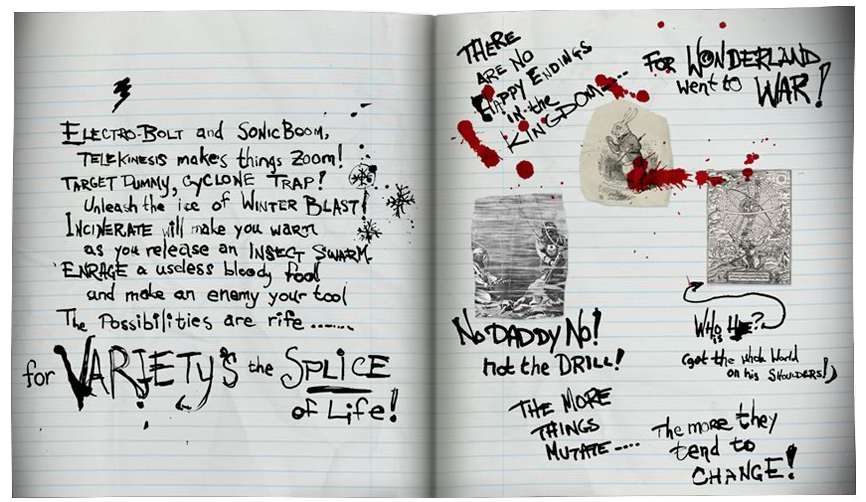 ELECTRO-BOLT and SONIC BOOM,
TELEKINESIS makes things ZOOM!
TARGET DUMMY, CYCLONE TRAP!
Unleash the ice of WINTER BLAST!
INCINERATE will make you warm
as you release an INSECT SWARM.
ENRAGE a useless bloody fool
and make an enemy your tool
The Possibilities are rife .......
for VARIETY'S the SPLICE
of Life!
THERE
ARE NO
HAPPY ENDINGS
in the
KINGDOM....
FOR WONDERLAND
went to WAR!
NO DADDY NO!
not the DRILL!
WHO is HE?
(got the whole World
on his SHOULDERS!)
THE MORE
THINGS
MUTATE ----
The more they
tend to
CHANGE!